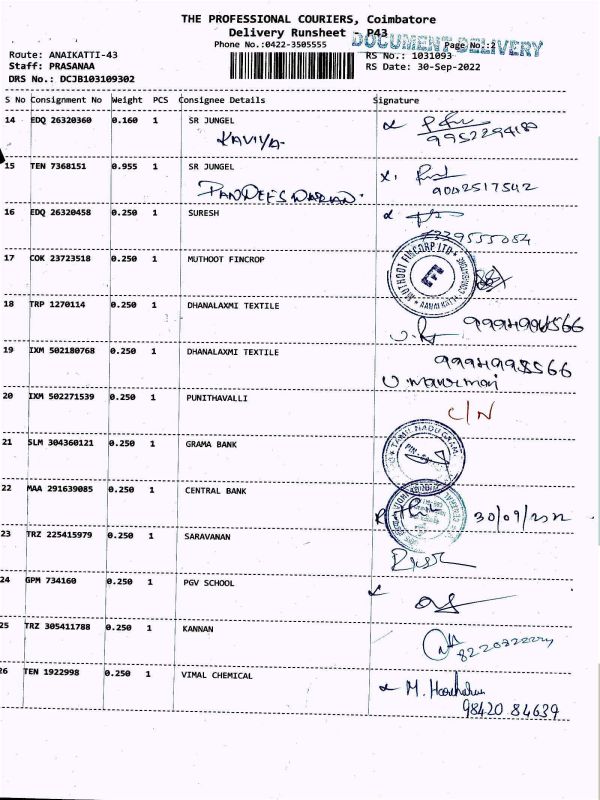 THE PROFESSIONAL COURIERS, Coimbatore
Delivery Runsheet - P43
DOCUMENT DELIVERY
Phone No.:0422-3505555 Page No.:2
Route: ANAIKATTI-43 RS No.: 1031093
Staff: PRASANAA RS Date: 30-Sep-2022
DRS No.: DCJB103109302
S No Consignment No Weight PCS Consignee Details Signature
14 EDQ 26320360 0.160 1 SR JUNGEL
KAVIYA
15 TEN 7368151 0.955 1 SR JUNGEL
9042517542
16 EDQ 26320458 0.250 1 SURESH
17 COK 23723518 0.250 1 MUTHOOT FINCROP
MUTHOOT FINCORP LTD
18 TRP 1270114 0.250 1 DHANALAXMI TEXTILE
19 IXM 502180768 0.250 1 DHANALAXMI TEXTILE
20 IXM 502271539 0.250 1 PUNITHAVALLI
C/N
21 SLM 304360121 0.250 1 GRAMA BANK
TAMIL NADU GRAMA
22 MAA 291639085 0.250 1 CENTRAL BANK
30/09/2022
23 TRZ 225415979 0.250 1 SARAVANAN
24 GPM 734160 0.250 1 PGV SCHOOL
25 TRZ 305411788 0.250 1 KANNAN
26 TEN 1922998 0.250 1 VIMAL CHEMICAL
98420 84639